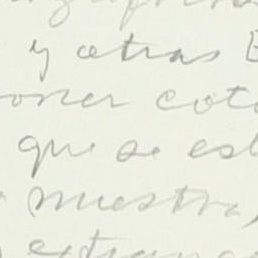 y otras
poner coto
que se est
nuestra
extran